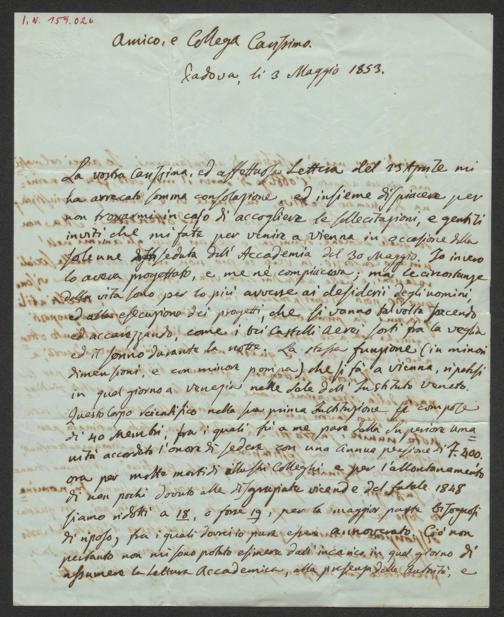 I.N. 159.026
Amico, e Collega Carissimo.
Padova, li 3 Maggio 1853.
La vostra Carissima, ed affettuosa Lettera del 15 Aprile mi
ha arrecato somma consolazione, ed insieme dispiacere per
non trovarmi in caso di accogliere le sollecitazioni, e gentili
inviti che mi fate per venire a Vienna in occasione della
solenne seduta dell' Accademia del 30 Maggio. Io invero
lo aveva progettato, e me ne compiaceva; ma le circostanze
della vita sono per lo più avverse ai desiderj degli uomini,
ed alla esecuzione dei progetti, che si vanno talvolta facendo
ed accarezzando, come i bei Castelli Aerei sorti fra la veglia
ed il sonno durante la notte. La stessa funzione (in minori
dimensioni, e con minor pompa) che si fà a Vienna, ripetesi
in quel giorno a Venezia nelle Sale dell' Instituto Veneto.
Questo Corpo scientifico nella sua prima Instituzione si compose
di 40 Membri, fra i quali fù a me pure dalla Superiore Uma=
nità accordato l'onore di sedere con una annua pensione di 400.
ora per molte morti di illustri Colleghi, e per l'allontanamento
di non pochi dovuto alle disgraziate vicende del fatale 1848
siamo ridotti a 18, o forse 19, per la maggior parte bisognosi
di riposo, fra i quali dovrei io pure essere annoverato. Ciò non
pertanto non mi sono potuto esimere dall' incarico in quel giorno di
assumere la Lettura Accademica, alla presenza delle Autorità, e